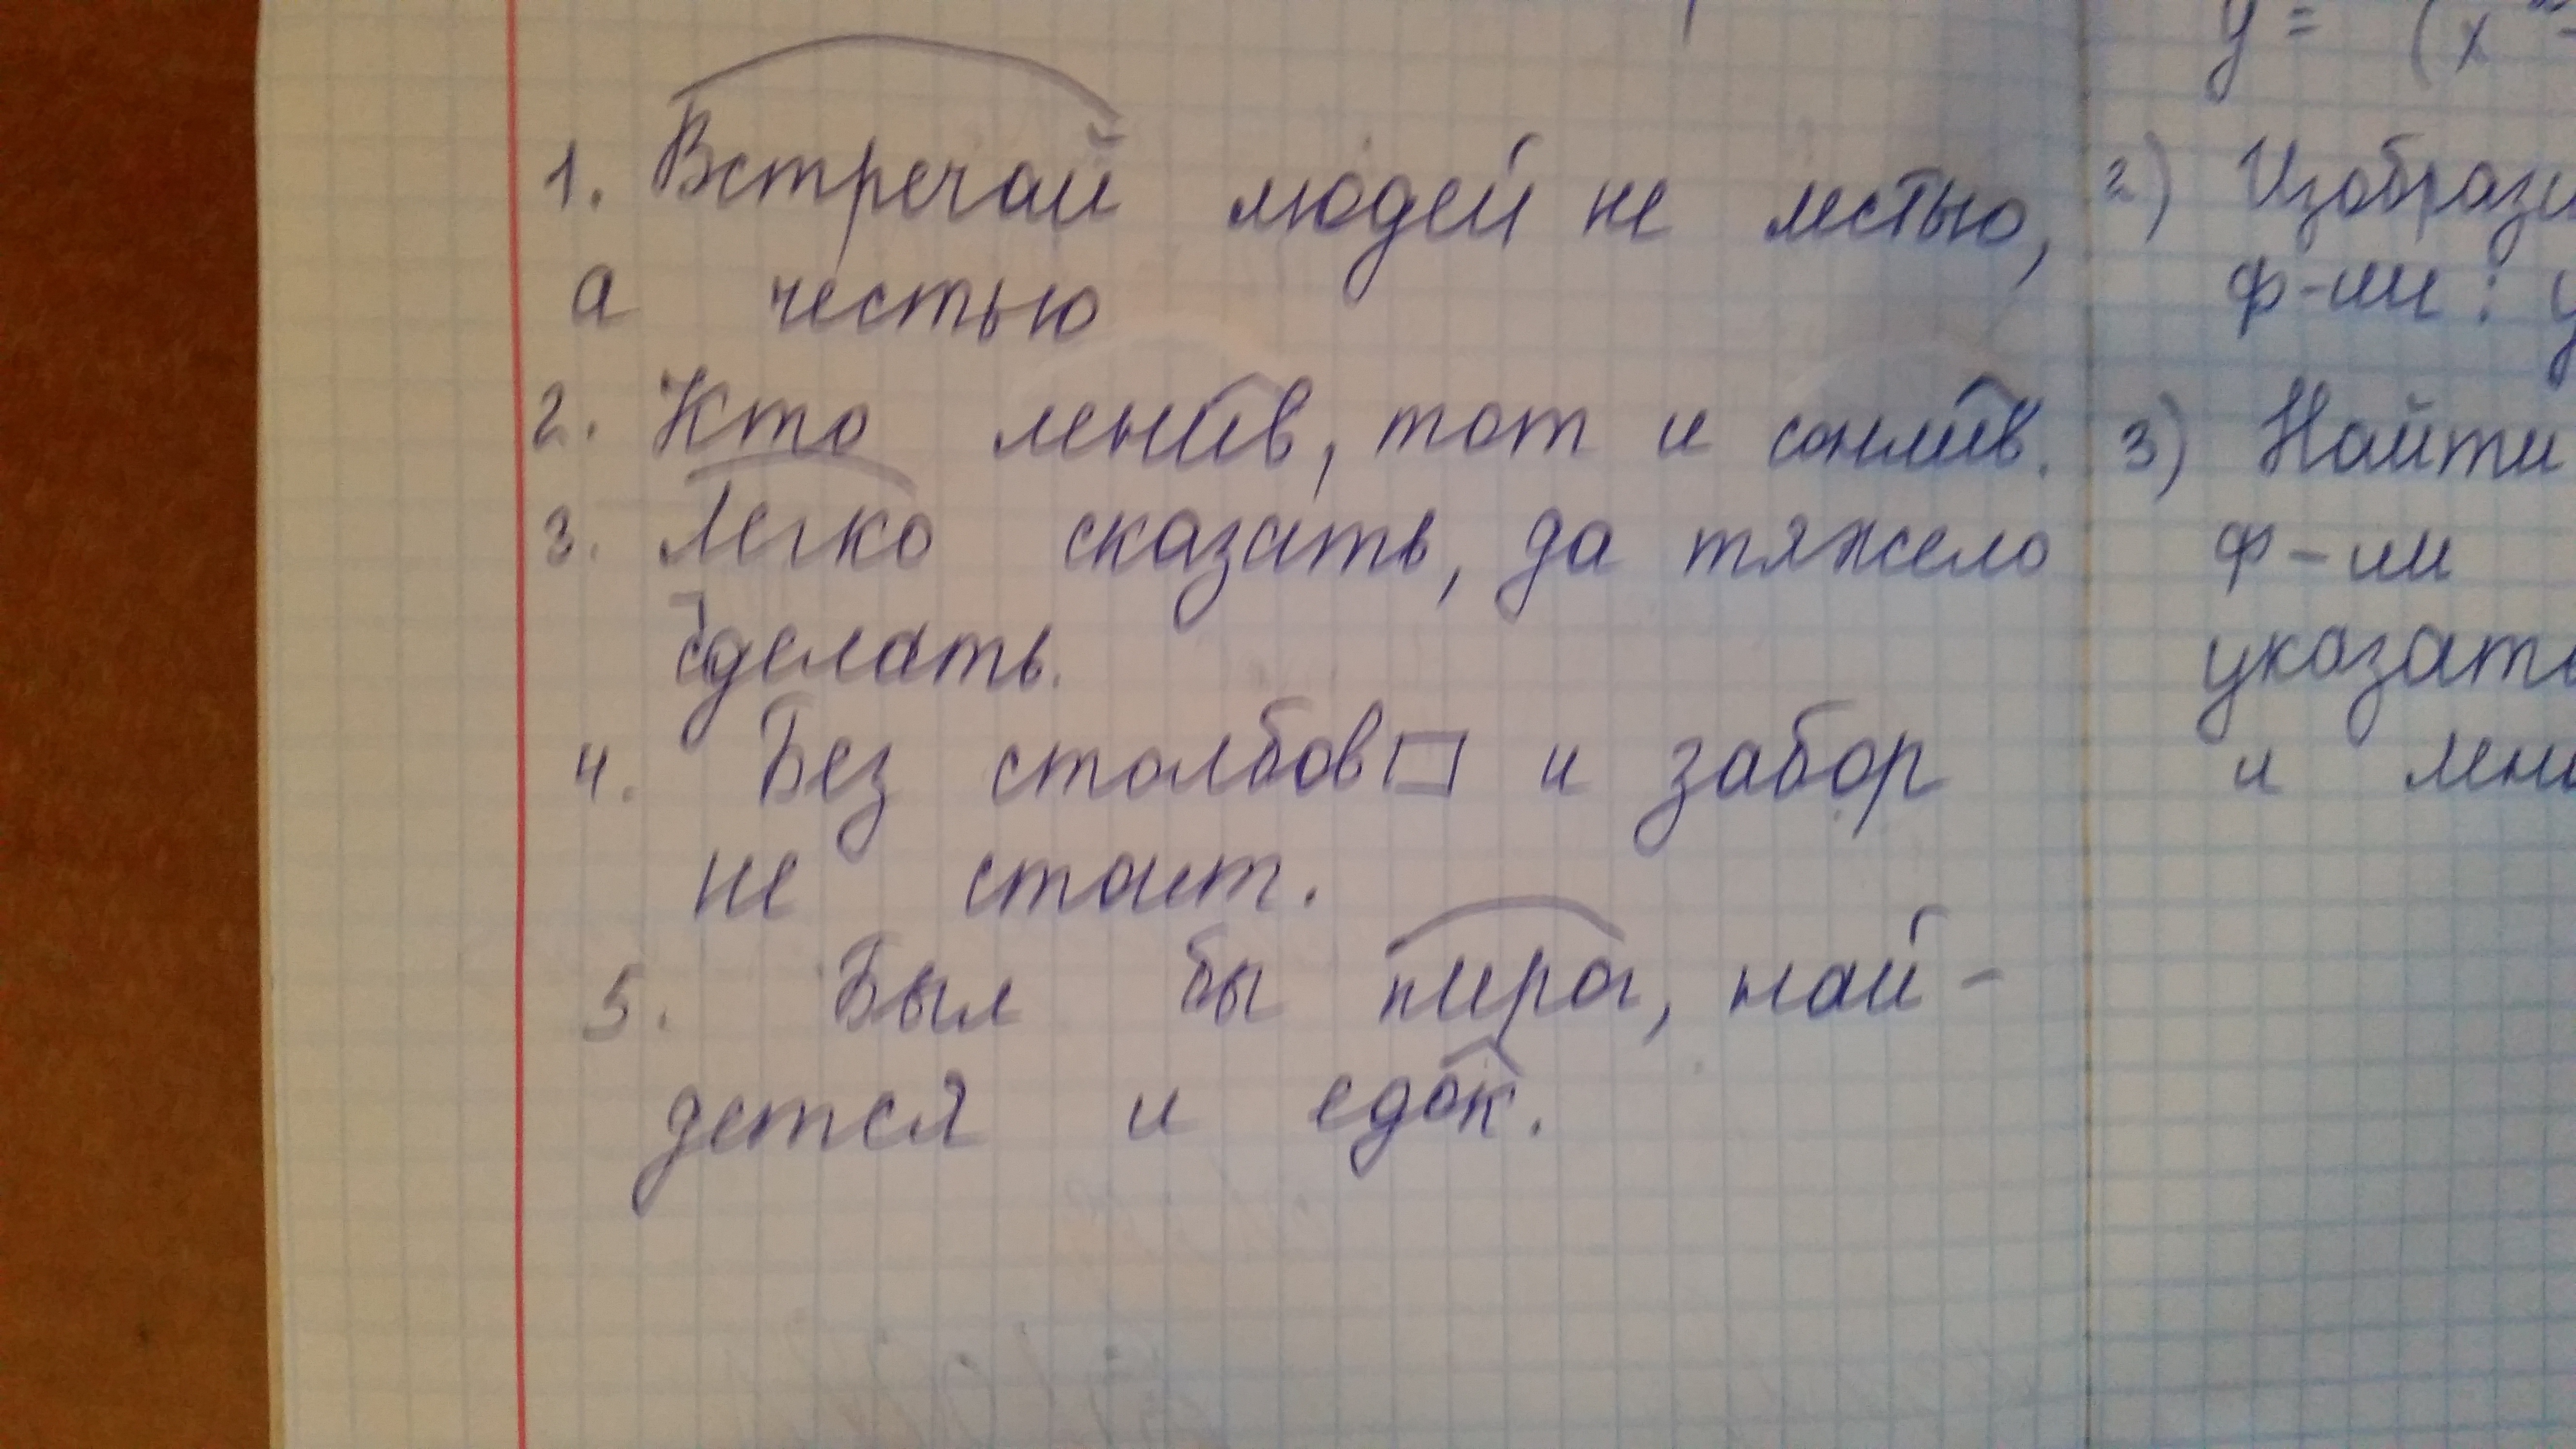 1. Встречай людей не лестью,
а честью
2. Кто ленив, тот и сонлив.
3. Легко сказать, да тяжело
сделать.
4. Без столбов и забор
не стоит.
5. Был бы пирог, най-
дется и едок.
y = (x
2) Изобрази
ф-ии : y
3) Найти
ф-ии
указать
и